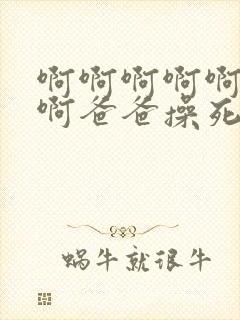 啊啊啊啊啊
啊爸爸操死
蜗牛就很牛